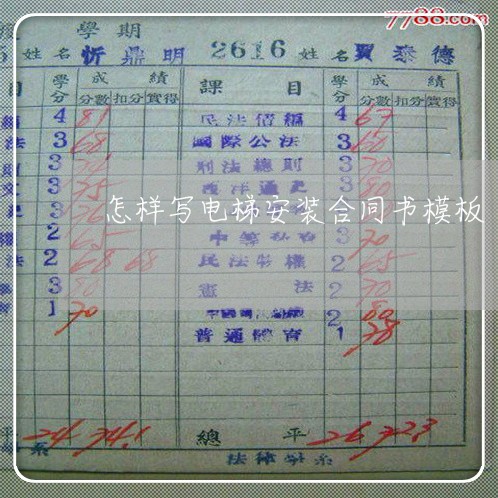 7788.com
學期
姓名 忻鼎明 2616 姓名 賈泰德
目 學分 成績 課目 學分 成績
分數 扣分 實得 分數 扣分 實得
4 81 民法債編 4 67
法 3 68 國際公法 3 60
3 刑法總則 3 70
3 75 西洋通史 3 80
怎样写电梯安装合同书模板
2 65 3 70
法 2 68 68 民法物權 2 65
3 80 憲法 2 70
1 70 2 80
普通體育 1 78
平 24 74.1 總平 26 72.3
系 法律學系